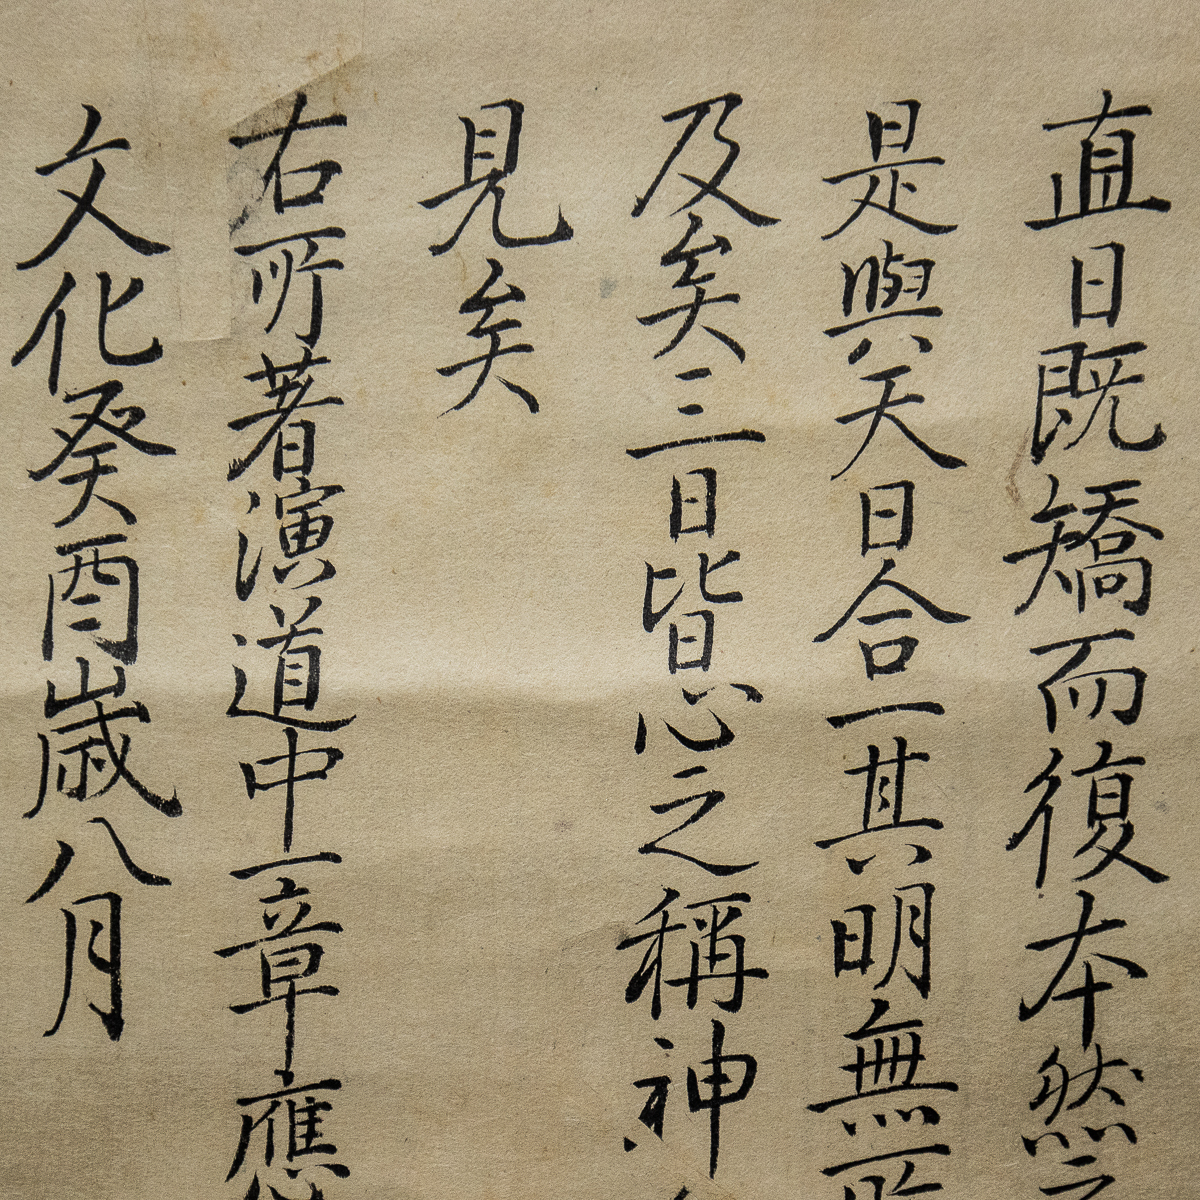 直日既矯而復本然之
是與天日合一其明無所
及矣三日皆心之稱神
見矣
右所著演道中一章應
文化癸酉歳八月